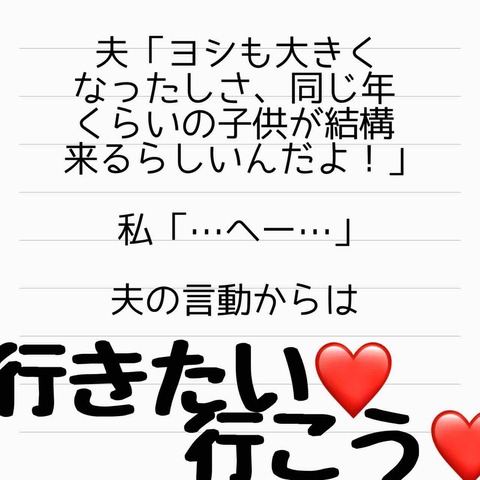 夫「ヨシも大きく
なったしさ、同じ年
くらいの子供が結構
来るらしいんだよ！」
私「…へー…」
夫の言動からは
行きたい❤️
行こう❤️